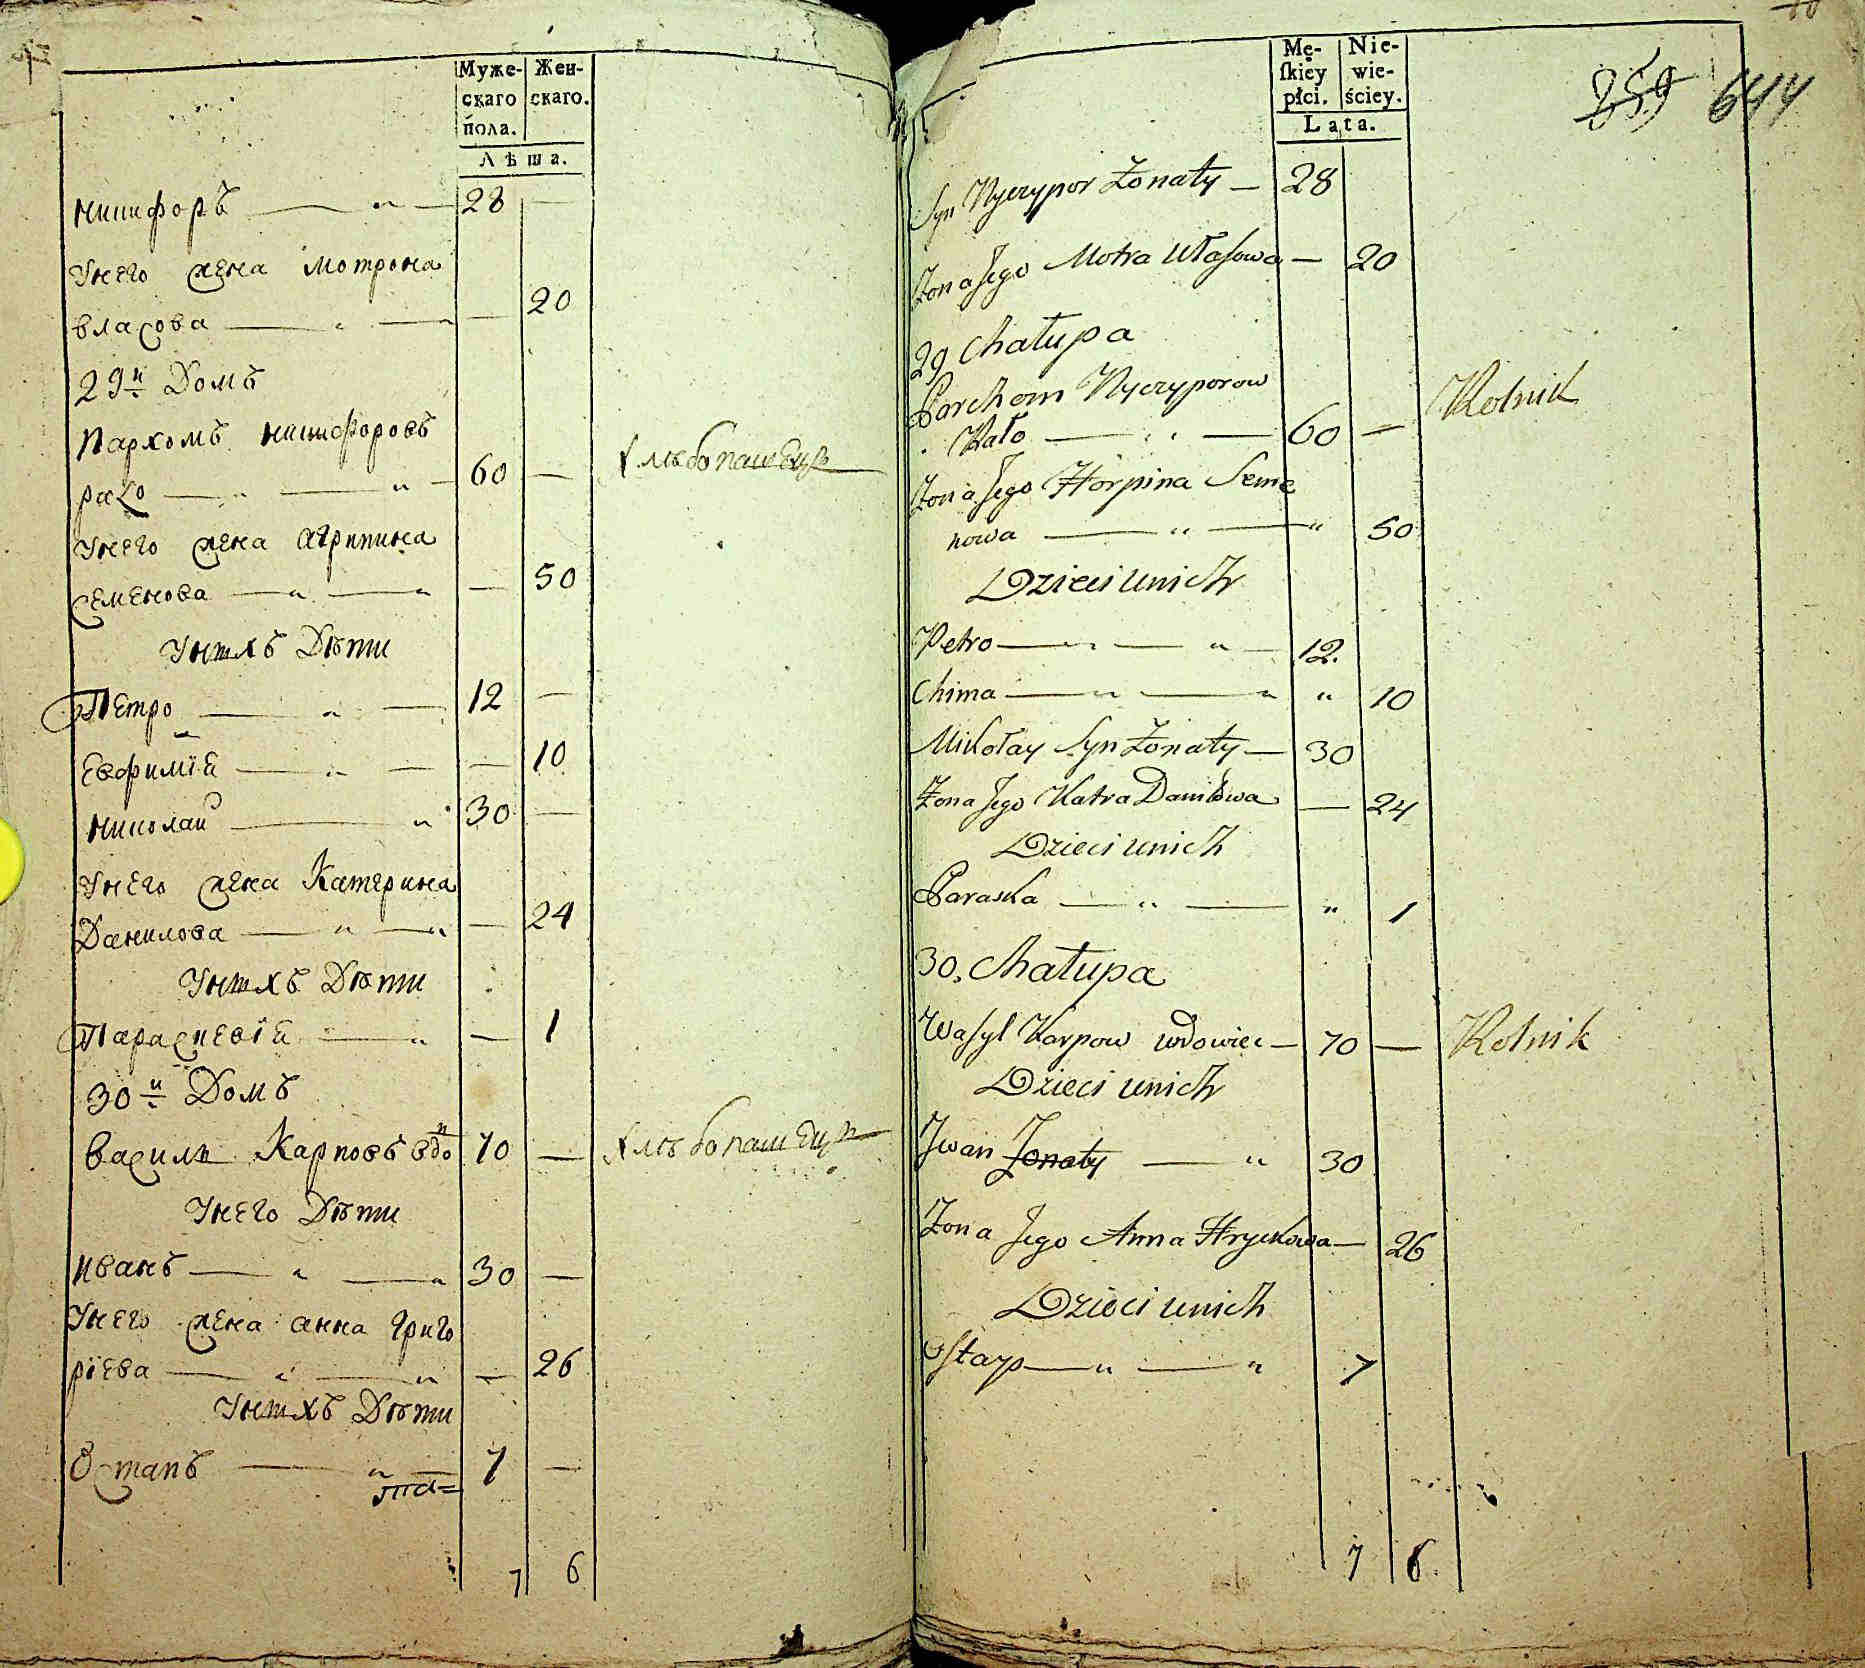 Муже-
скаго
пола.
Жен-
скаго.
Лѣта.
никифоръ — „ — 28 —
Унего жена мотрона
власова — „ — — 20
29й Домъ
Пархомъ никифоровъ
рало — „ — „ — 60 — хлѣбопашецъ
Унего жена агрипина
семенова — „ — „ — 50
Унихъ Дѣти
Петро — „ — 12 —
Евфимія — „ — — 10
николай — „ 30 —
Унего жена Катерина
Данилова — „ — „ — 24
Унихъ Дѣти
Параскевія — „ — 1
30й Домъ
василь Карповъ вдо 70 — хлѣбопашецъ
Унего Дѣти
иванъ — „ — „ 30 —
Унего жена анна григо
ріева — „ — „ — 26
Унихъ Дѣти
Остапъ — „ — 7 —
7 6
Mę-
skiey
płci.
Nie-
wie-
ściey.
Lata.
259 644
Syn Nyczypor Żonaty — 28
Żona Jego Motra Własowa — 20
29 Chałupa
Parchom Nyczyporow
Rało — „ — 60 — Rolnik
Żona Jego Horpina Seme
nowa — „ — „ 50
Dzieci unich
Petro — „ — „ — 12.
Chima — „ — „ „ 10
Mikołay Syn Żonaty — 30
Żona Jego Katra Daniłowa — 24
Dzieci unich
Paraska — „ — „ 1
30. Chałupa
Wasyl Karpow wdowiec — 70 — Rolnik
Dzieci unich
Iwan Żonaty — „ 30
Żona Jego Anna Hryckowa — 26
Dzieci unich
Ostap — „ — „ 7
7 6.